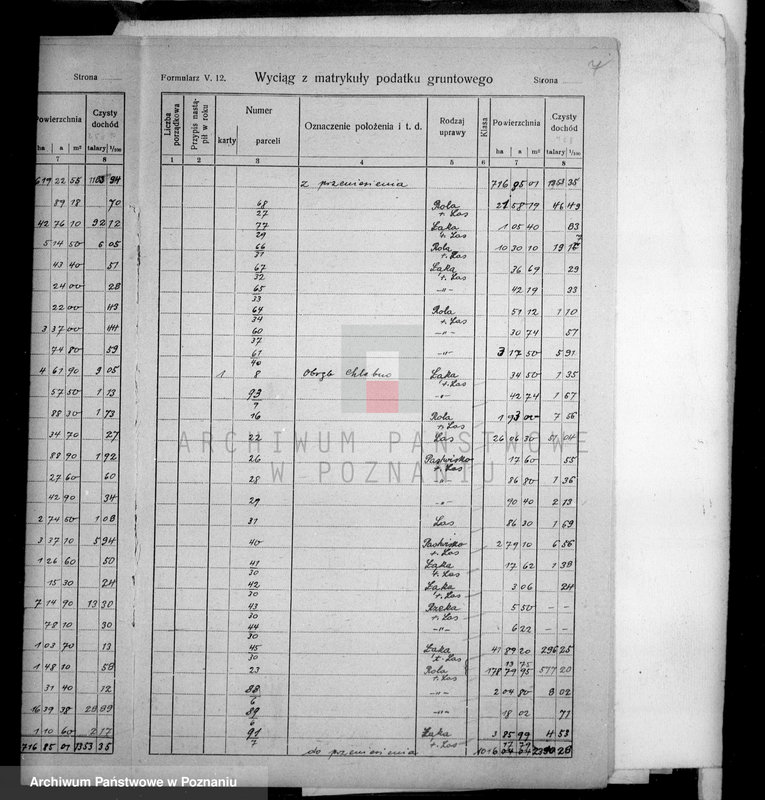 Strona
Powierzchnia Czysty dochód
ha a m² talary 1/100
7 8
619 22 55 1183 94
89 18 70
42 76 10 92 72
5 14 50 6 05
43 40 51
24 00 28
22 00 43
3 37 00 44
74 80 59
4 61 90 9 05
57 50 1 13
88 30 1 73
34 70 27
88 90 1 92
27 60 60
42 90 34
2 74 50 1 08
3 37 10 5 94
1 26 60 50
15 30 24
7 14 90 13 30
78 10 30
1 03 70 13
1 48 10 58
31 40 12
16 39 38 28 89
1 10 60 2 17
716 85 01 1353 35
Formularz V. 12. Wyciąg z matrykuły podatku gruntowego Strona
Liczba porządkowa Przypis nastąpił w roku Numer karty parceli Oznaczenie położenia i t. d. Rodzaj uprawy Klasa Powierzchnia ha a m² Czysty dochód talary 1/100
1 2 3 4 5 6 7 8
z przeniesienia 716 85 01 1353 35
68/27 Rola i. Las 27 58 19 46 49
77/29 Łąka i. Las 1 05 40 83
66/31 Rola i. Las 10 30 10 19 16
67/32 Łąka i. Las 36 69 29
65/33 -"- 42 19 33
64/34 Rola i. Las 51 12 1 10
60/37 -"- 30 74 57
61/40 -"- 3 17 50 5 91
1 8 Obręb Chłabno Łąka i. Las 34 50 1 35
93/9 -"- 42 74 1 67
16 Rola i. Las 1 93 00 7 56
22 Las 26 06 30 51 04
26 Pastwisko i. Las 17 60 55
28 " 86 80 1 36
29 -"- 90 40 2 13
31 Las 86 30 1 69
40 Pastwisko i. Las 2 79 10 6 56
41/30 Łąka i. Las 17 62 1 38
42/30 Łąka i. Las 3 06 24
43/30 Rzeka i. Las 5 50 - -
44/30 -"- 6 22 - -
45/30 Łąka i. Las 41 89 20 296 25
23 Rola i. Las 178 79 95 577 20
88/6 -"- 2 04 80 8 02
89/6 -"- 18 02 71
91/7 Łąka i. Las 3 85 99 4 53
do przeniesienia
ARCHIWUM PAŃSTWOWE
W POZNANIU
Archiwum Państwowe w Poznaniu